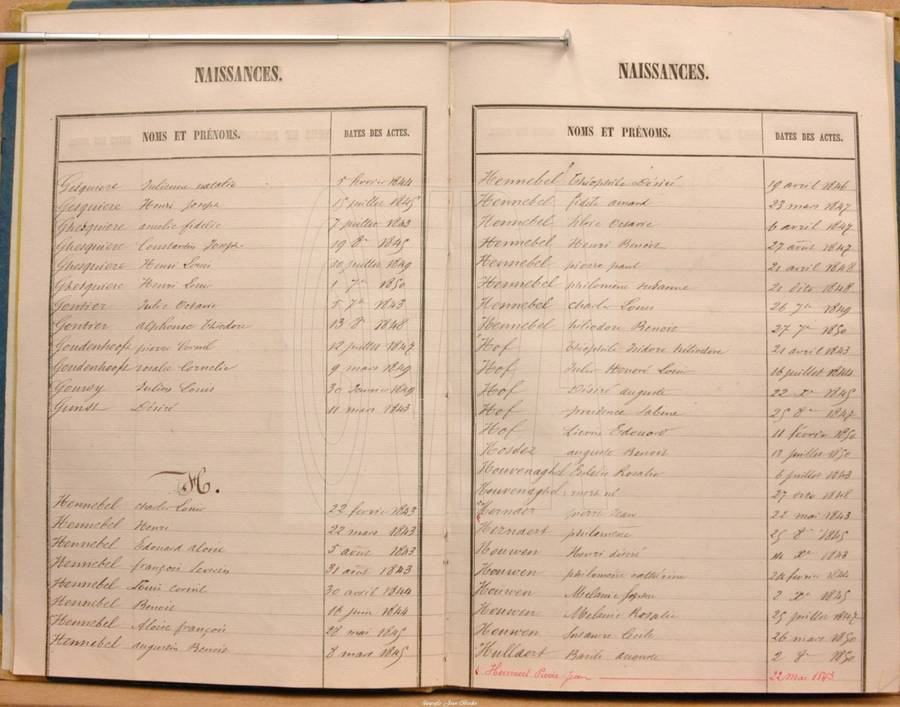 NAISSANCES.
NOMS ET PRÉNOMS. DATES DES ACTES.
Gesquiere Julienne natalie 5 fevrier 1844
Gesquiere Henri Joseph 15 juillet 1845
Ghesquiere amelie fidélie 7 juillet 1843
Ghesquiere Constantin Joseph 19 8re 1845
Ghesquiere Henri Louis 30 juillet 1849
Ghesquiere Henri Louis 1 7re 1850
Gontier Julie Octavie 5 7re 1843
Gontier alphonse théodore 13 8re 1848
Goudenhooft pierre Cornil 12 juillet 1847
Goudenhooft rosalie Cornelie 9 mars 1849
Goussy Julien Louis 30 Janvier 1849
Gunst Désiré 11 mars 1843
H.
Hennebel charles Louis 22 fevrier 1843
Hennebel Henri 22 mars 1843
Hennebel Edouard aloise 5 août 1843
Hennebel françois Severin 21 août 1843
Hennebel Louis cornil 30 avril 1844
Hennebel Benoit 16 juin 1844
Hennebel Aloise françois 28 mai 1845
Hennebel augustin Benoit 8 mars 1845
NAISSANCES.
NOMS ET PRÉNOMS. DATES DES ACTES.
Hennebel théophile Désiré 19 avril 1846
Hennebel fidèle amand 23 mars 1847
Hennebel Octavie 6 avril 1847
Hennebel Henri Benoit 27 août 1847
Hennebel pierre paul 21 avril 1848
Hennebel philomène Suzanne 21 Xbre 1848
Hennebel charles Louis 26 7re 1849
Hennebel héliodore Benoit 27 7re 1850
Hof théophile Isidore héliodore 21 avril 1843
Hof Jules Honoré Louis 16 juillet 1844
Hof Désiré auguste 22 Xre 1845
Hof prudence Sabine 25 8re 1847
Hof Edouard 11 février 1850
Hosdez auguste Benoit 12 juillet 1850
Houvenaghel Rosalie 6 juillet 1843
Houvenaghel mort né 27 1848
Hernaer pierre Jean 22 mai 1843
Hernaert philomène 25 8re 1845
Houwen Henri désiré 14 Xre 1843
Houwen philomène catherine 24 fevrier 1844
Houwen Mélanie Sophie 2 Xre 1845
Houwen Mélanie Rosalie 25 juillet 1847
Houwen Susanne Cécile 26 mars 1850
Hullaert Basile auguste 2 8re 1850
Pierre jean 22 mai 1843